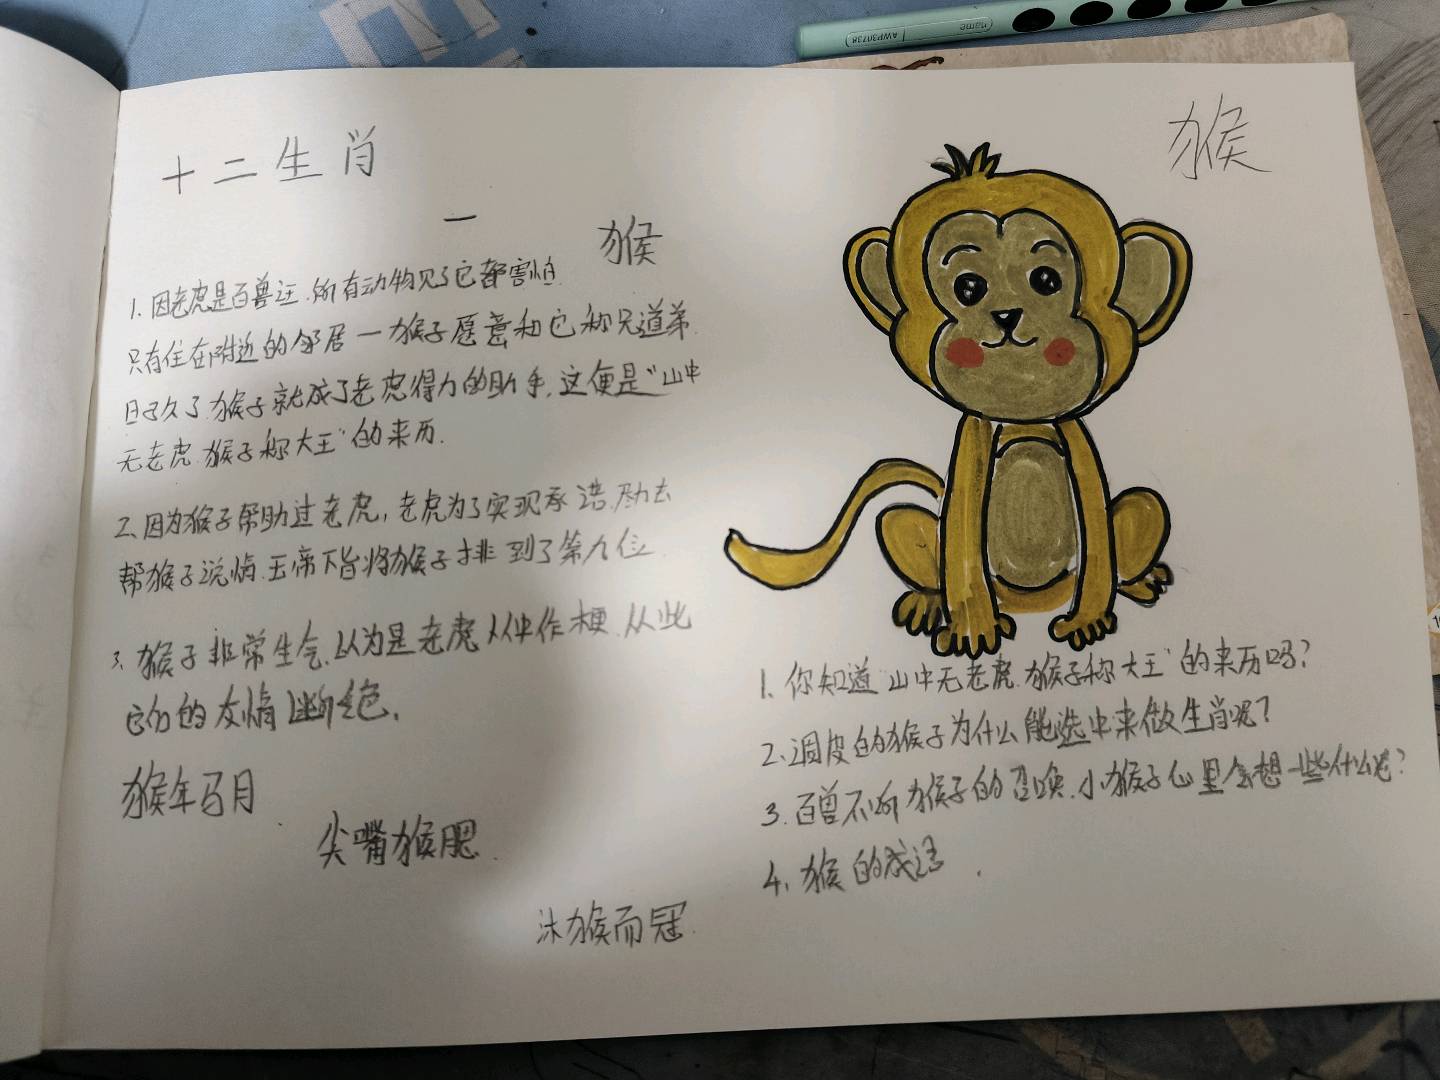 十二生肖
一
猴
1.因老虎是百兽王.所有动物见了它都害怕.
只有住在附近的邻居一猴子愿意和它称兄道弟.
日子久了.猴子就成了老虎得力的助手.这便是"山中
无老虎.猴子称大王"的来历.
2.因为猴子帮助过老虎,老虎为了实现承诺.去
帮猴子说情.玉帝下旨将猴子排到了第九位
3.猴子非常生气.以为是老虎从中作梗.从此
它们的友情断绝.
猴年马月
尖嘴猴腮.
沐猴而冠.
猴
1.你知道"山中无老虎.猴子称大王"的来历吗?
2.调皮的猴子为什么能选中来做生肖呢?
3.百兽不听猴子的召唤.小猴子心里会想一些什么呢?
4.猴的成语.
name
AWP30738